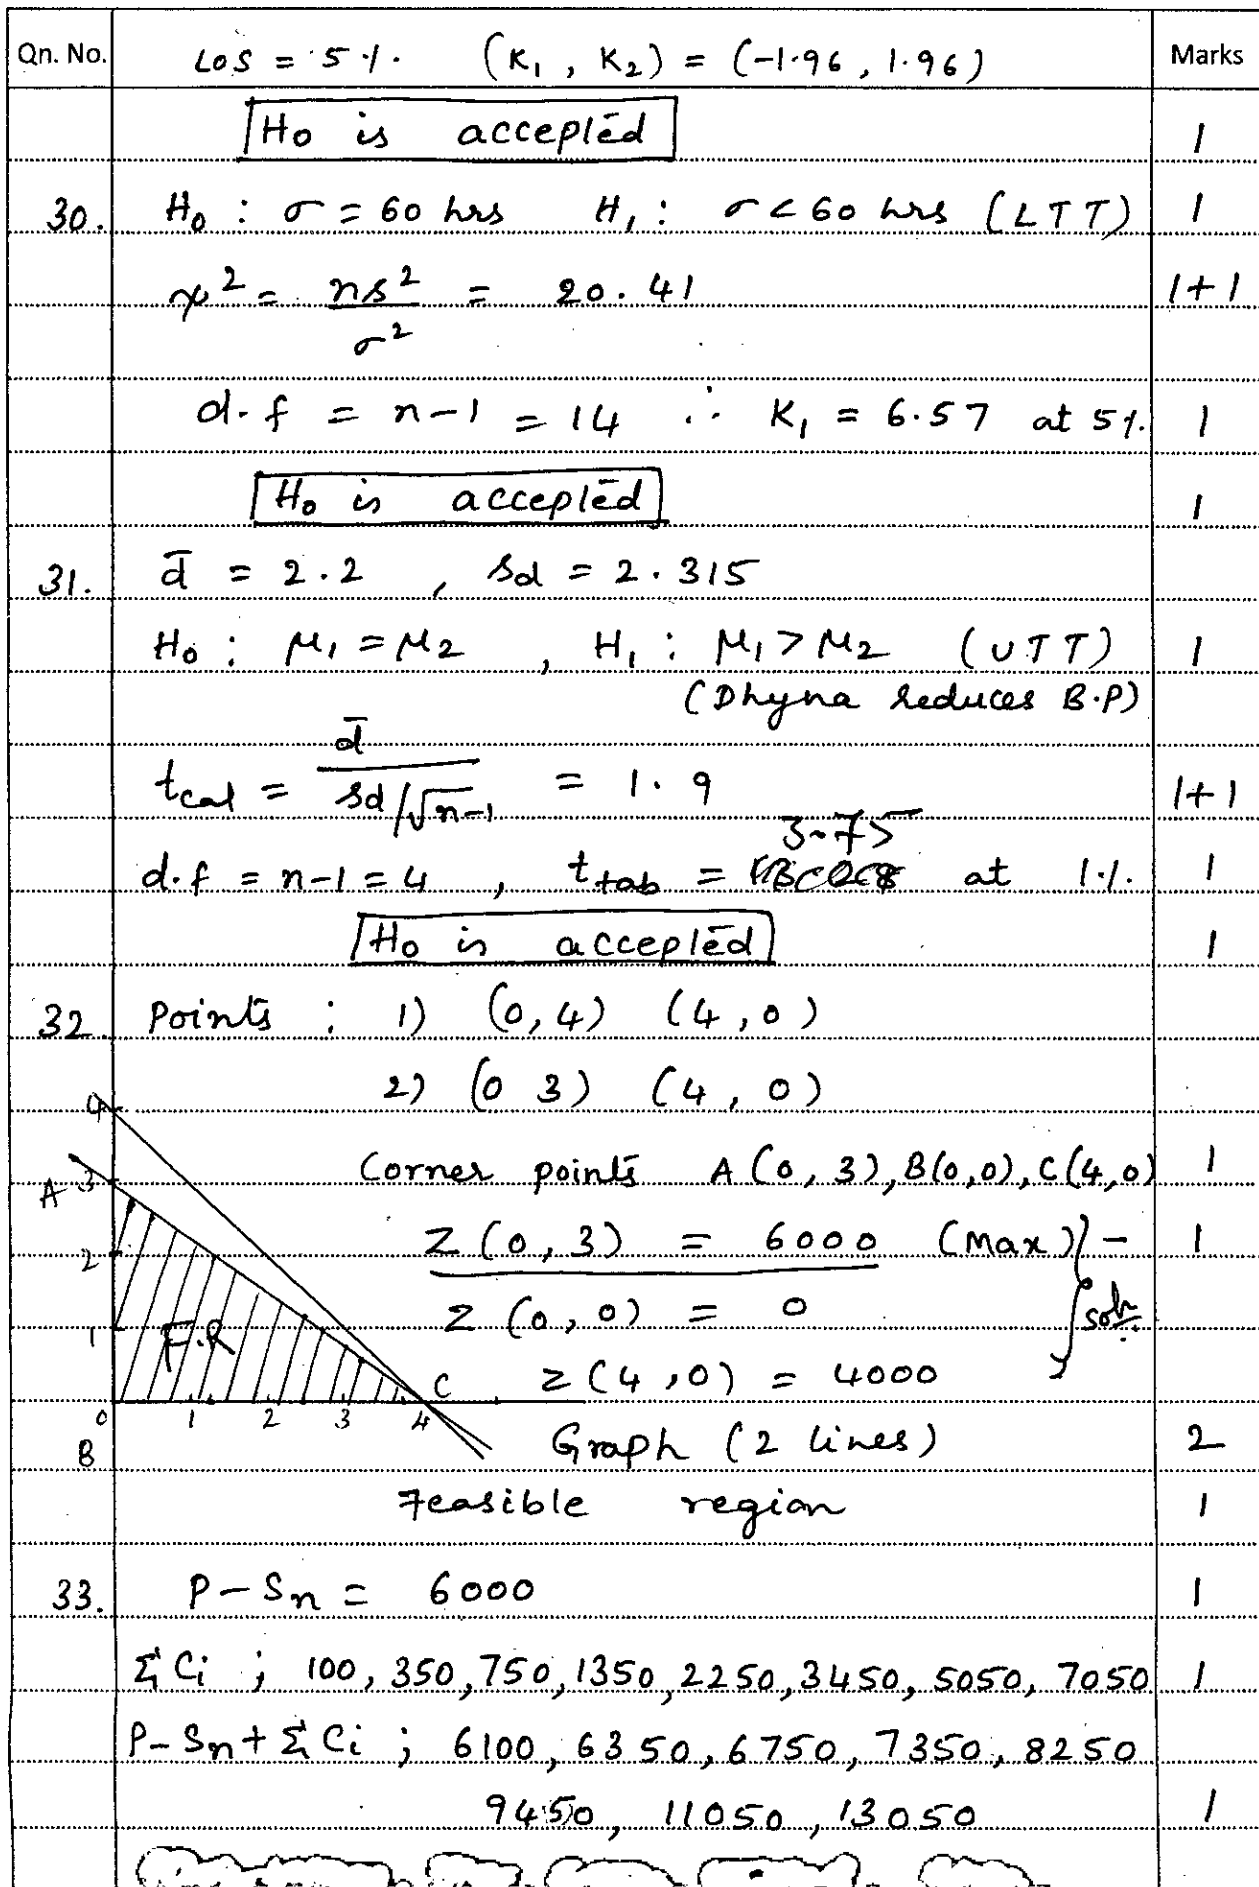 Qn. No. LOS = 5 %. (K₁, K₂) = (-1.96, 1.96) Marks
H₀ is accepted 1
30. H₀ : σ = 60 hrs H₁ : σ < 60 hrs (LTT) 1
χ² = ns²/σ² = 20.41 1+1
d.f = n-1 = 14 ∴ K₁ = 6.57 at 5%. 1
H₀ is accepted 1
31. d̄ = 2.2, sd = 2.315
H₀ : μ₁ = μ₂, H₁ : μ₁ > μ₂ (UTT) 1
(Dhyna reduces B.P)
t cal = d̄ / (sd/√n-1) = 1.9 1+1
3.75
d.f = n-1 = 4, t tab = at 1%. 1
H₀ is accepted 1
32. Points : 1) (0,4) (4,0)
2) (0 3) (4, 0)
4
A 3 Corner points A(0,3), B(0,0), C(4,0) 1
2 Z(0,3) = 6000 (Max) - 1
1 F.R Z(0,0) = 0 soln.
C Z(4,0) = 4000
0 1 2 3 4
B Graph (2 lines) 2
Feasible region 1
33. P - Sn = 6000 1
Σ Ci ; 100, 350, 750, 1350, 2250, 3450, 5050, 7050 1
P - Sn + Σ Ci ; 6100, 6350, 6750, 7350, 8250
9450, 11050, 13050 1